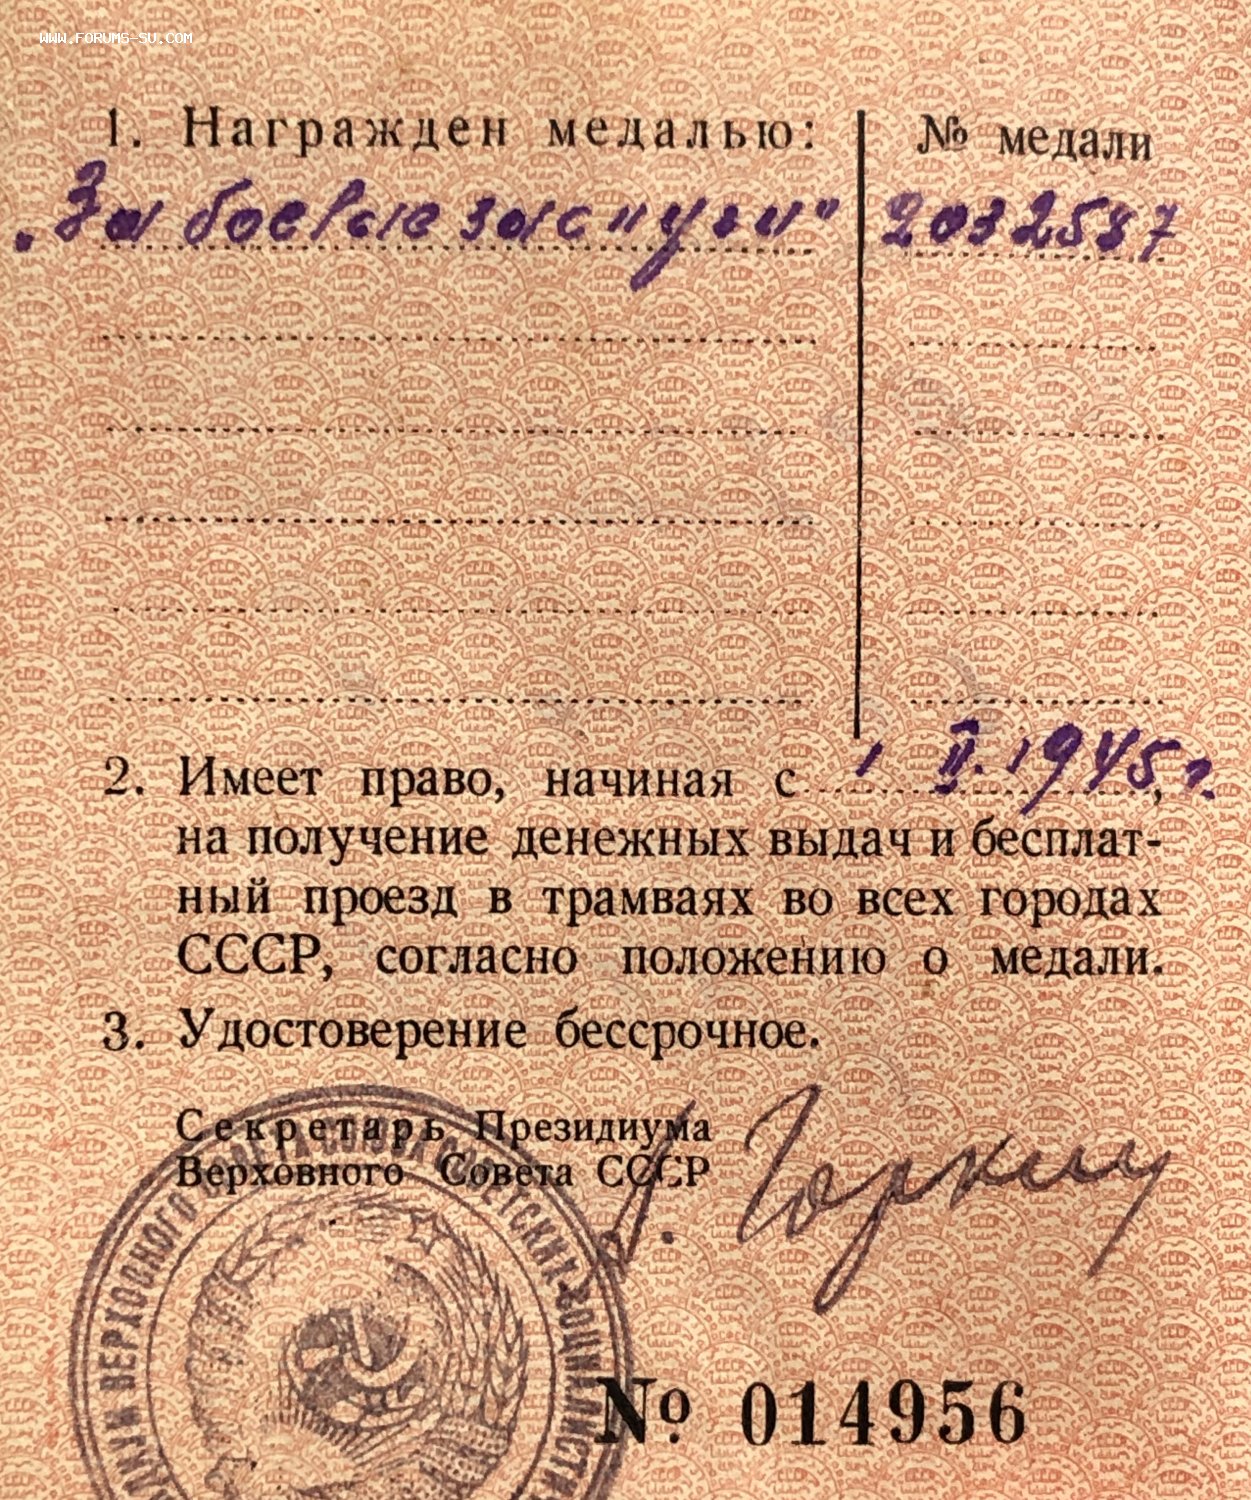 WWW.FORUMS-SU.COM
1. Награжден медалью: № медали
„За боевые заслуги" 2032587
2. Имеет право, начиная с 1 II. 1945, г.
на получение денежных выдач и бесплат-
ный проезд в трамваях во всех городах
СССР, согласно положению о медали.
3. Удостоверение бессрочное.
Секретарь Президиума
Верховного Совета СССР
А. Горкин
ВЕРХОВНОГО СОВЕТА СОЮЗА СОВЕТСКИХ
№ 014956